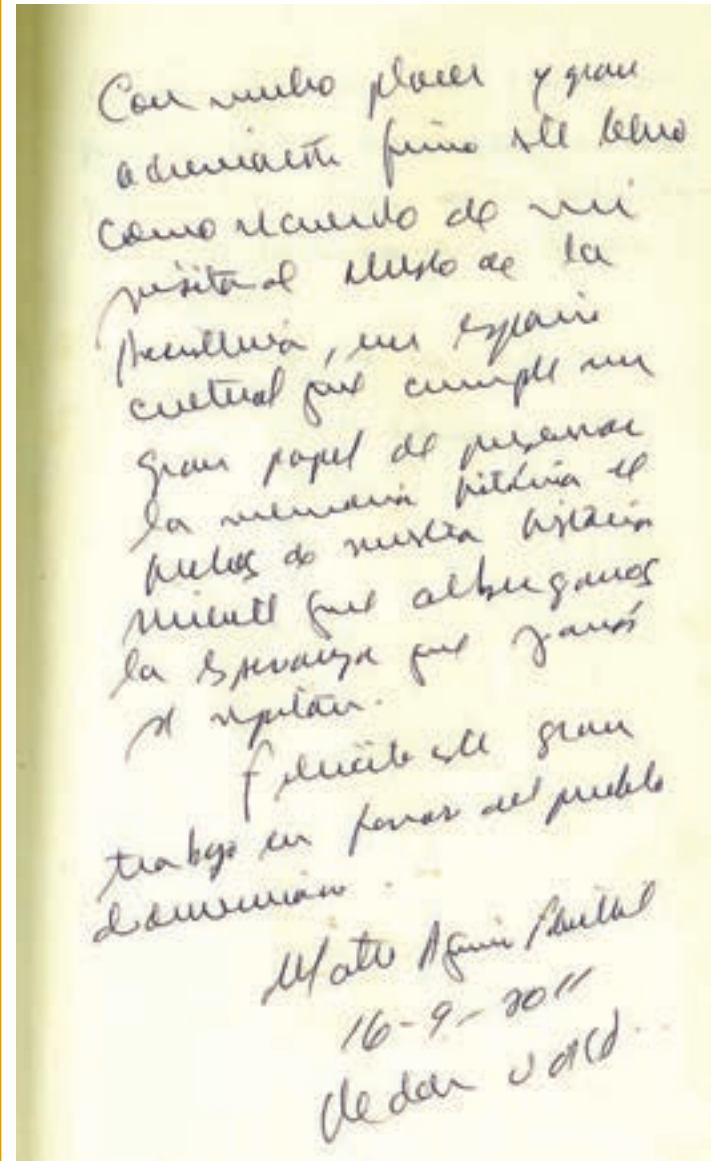 Con mucho placer y gran
admiración firmo este libro
como recuerdo de mi
visita al Museo de la
Resistencia, un espacio
cultural que cumple un
gran papel de preservar
la memoria histórica de
hechos de nuestra historia
reciente que albergamos
la esperanza que jamás
se repitan.
Felicito este gran
trabajo en favor del pueblo
dominicano.
Mateo Aquino
16-9-2011